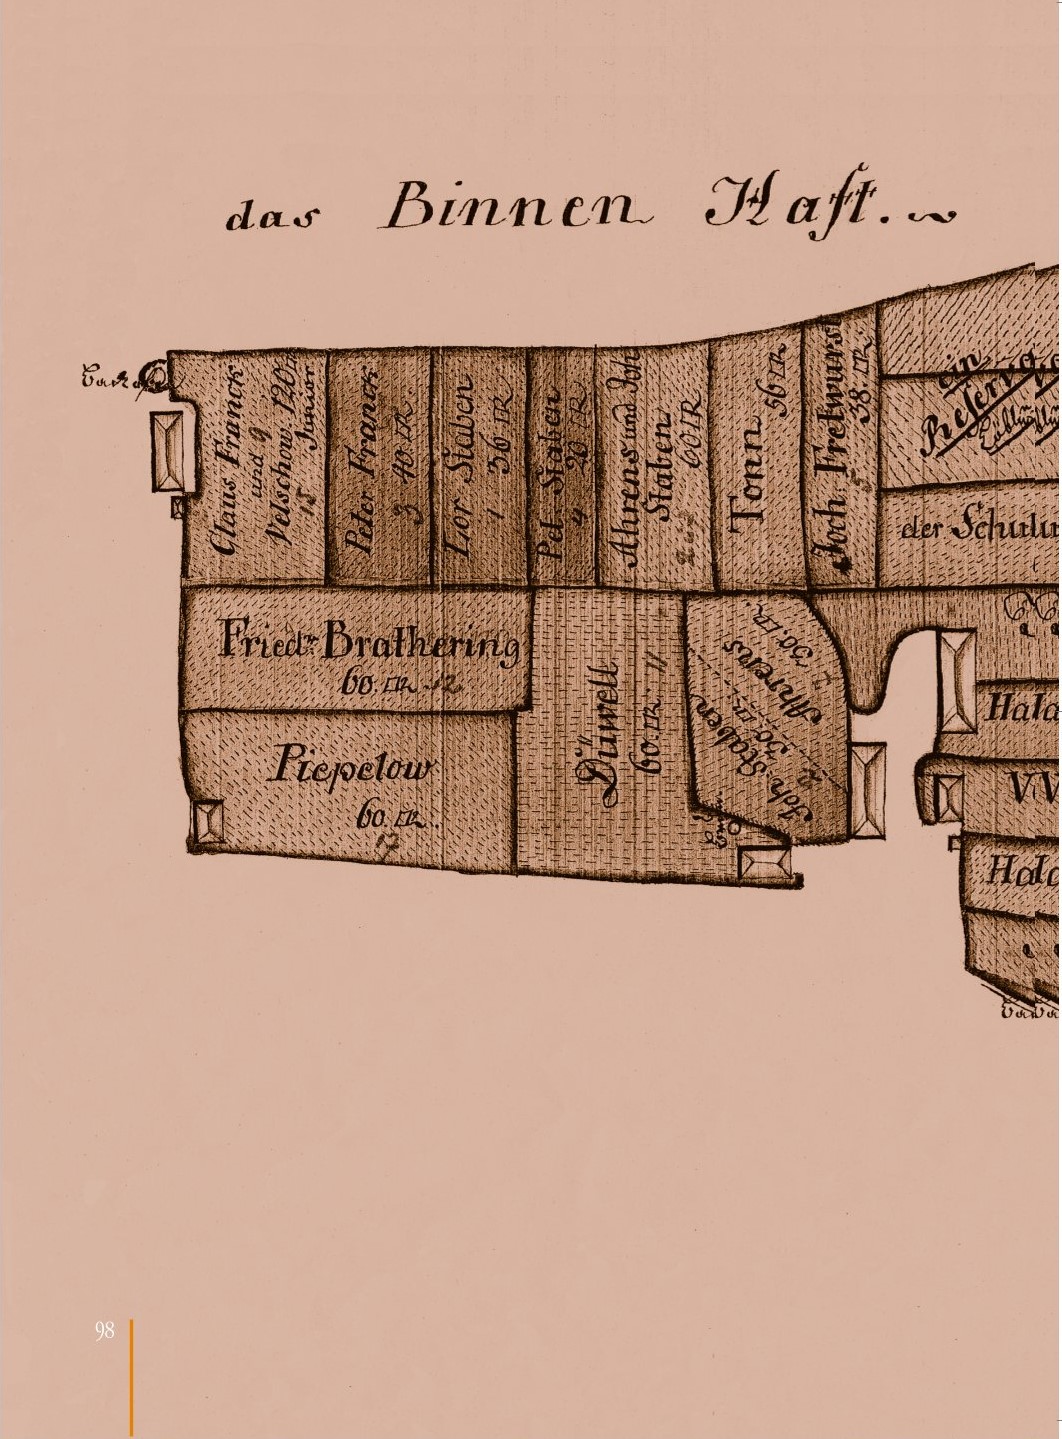 das Binnen Haft.
Claus Franck
und 9
Velschow. 120 □R
15 Junior
Peter Franck
3 40. □R.
Lor Staben
1 36 □R
Pet. Staben
4 20 □R.
Ahrens und Joh
Staben
2 u 2 60 □R
Tonn
56 □R
Joch. Fretwurst
5 38. □R
ein
Preserv
der Schul
Friedr. Brathering
60. □R 12
Piepelow
60. □R..
7
Düwell
60. □R.. 11
Ahrens
30. □R.
Joh. Staben
2 30 □R
Hala
W
Hala
98